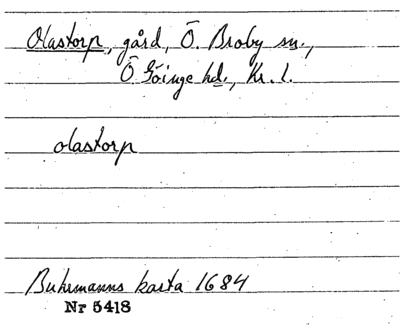 Olastorp, gård, Ö. Broby sn.,
Ö Göinge hd., Kr. l.
olastorp
Buhrmanns karta 1684
Nr 5418